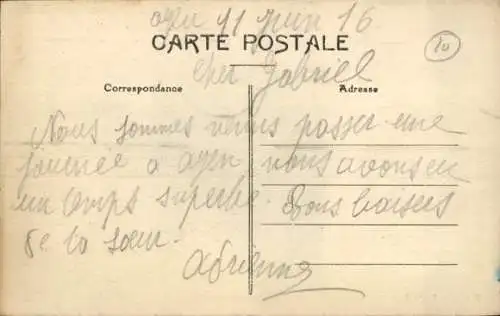 agen 11 Juin 16
CARTE POSTALE
10
Cher Gabriel
Correspondance
Adresse
Nous sommes venus passer une
journée a agen nous avons eu
un temps superbe. Bons baisers
de ta sœur.
Adrienne